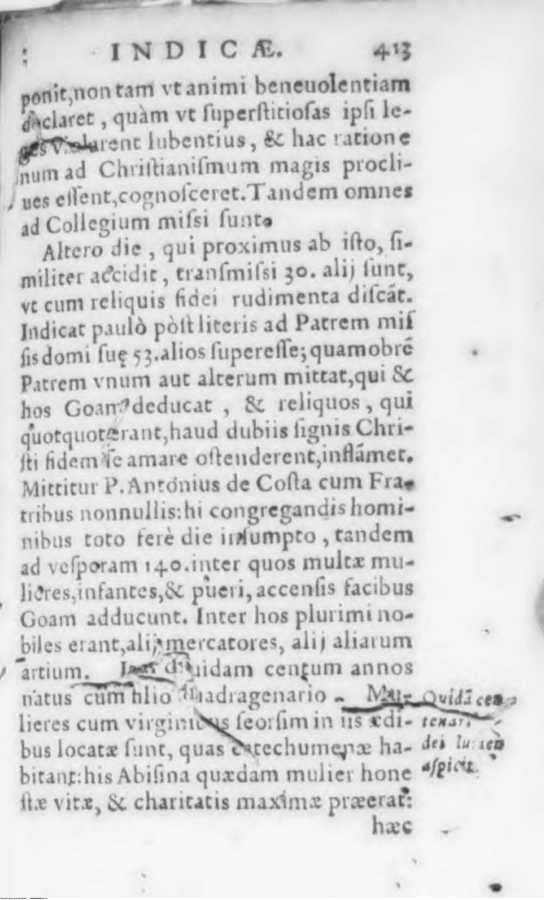 INDICÆ. 413
ponit,non tam vt animi beneuolentiam
declaret, quàm vt superstitiosas ipsi le-
ges violarent lubentius, & hac ratione
num ad Christianismum magis procli-
ues essent,cognosceret.Tandem omnes
ad Collegium missi sunt.
Altero die, qui proximus ab isto, si-
militer accidit, transmissi 30. alij sunt,
vt cum reliquis fidei rudimenta discāt.
Indicat paulò pòst literis ad Patrem mis
sis domi suę 53.alios superesse; quamobrē
Patrem vnum aut alterum mittat,qui &
hos Goam deducat, & reliquos, qui
quotquot erant,haud dubiis signis Chri-
sti fidem se amare ostenderent,inflāmet.
Mittitur P. Antonius de Costa cum Fra-
tribus nonnullis:hi congregandis homi-
nibus toto ferè die insumpto, tandem
ad vesperam 140.inter quos multæ mu-
lieres,infantes,& pueri, accensis facibus
Goam adducunt. Inter hos plurimi no-
biles erant,alij mercatores, alij aliarum
artium. quidam centum annos
natus cum filio quadragenario. Mu-
lieres cum virginibus seorsim in iis ædi-
bus locatæ sunt, quas catechumenæ ha-
bitant:his Abisina quædam mulier hone
stæ vitæ, & charitatis maximæ præerat:
hæc
Quidā cen
tenari
dei lumen
aspicit.